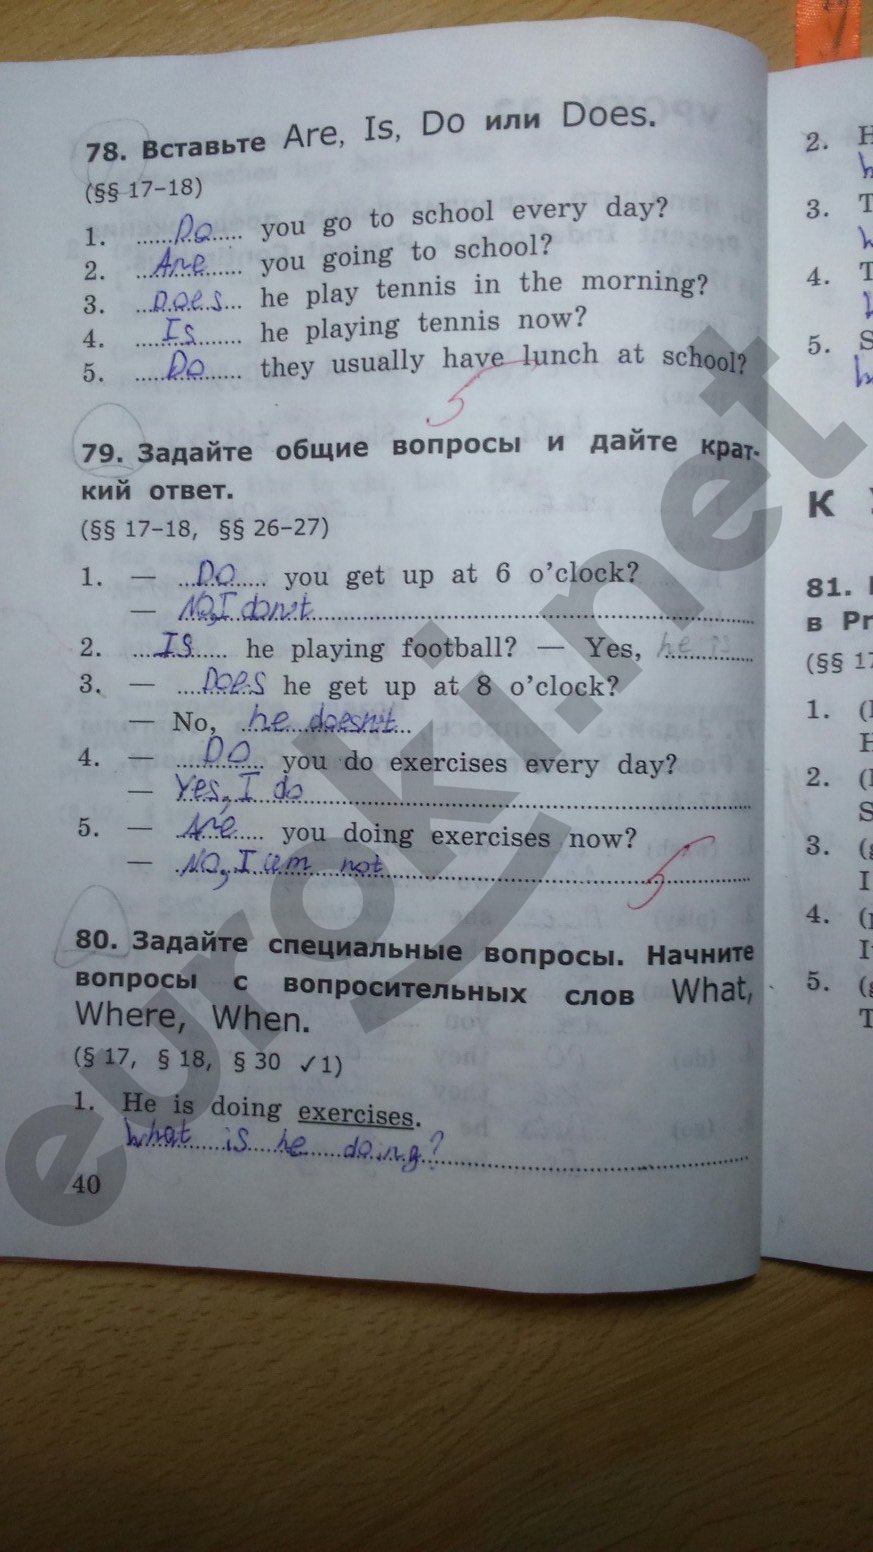 78. Вставьте Are, Is, Do или Does.
(§§ 17–18)
1. Do you go to school every day?
2. Are you going to school?
3. Does he play tennis in the morning?
4. Is he playing tennis now?
5. Do they usually have lunch at school?
5
79. Задайте общие вопросы и дайте крат-
кий ответ.
(§§ 17–18, §§ 26–27)
1. — Do you get up at 6 o’clock?
— No, I don't
2. Is he playing football? — Yes, he is
3. — Does he get up at 8 o’clock?
— No, he doesn't
4. — Do you do exercises every day?
— Yes, I do
5. — Are you doing exercises now?
— No, I am not
5
80. Задайте специальные вопросы. Начните
вопросы с вопросительных слов What,
Where, When.
(§ 17, § 18, § 30 ✓1)
1. He is doing exercises.
What is he doing?
40
2. H
3. T
4. T
5. S
К
81.
в Pr
(§§ 17
1.
H
2.
S
3.
I
4.
I
5.
T
euroki.net